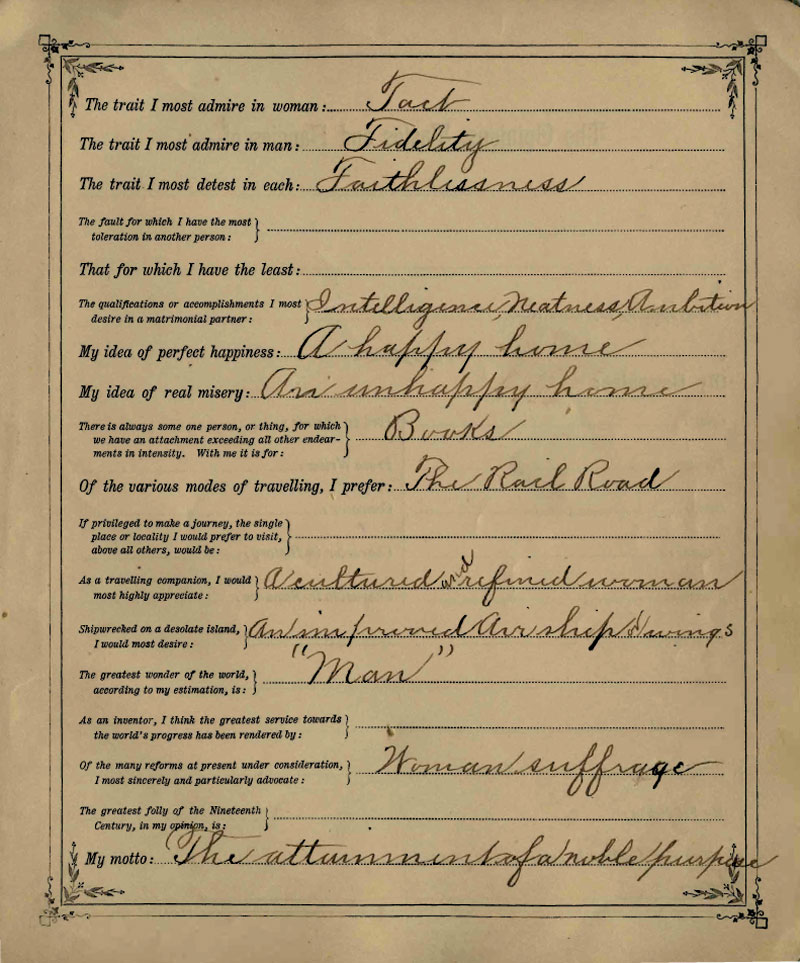 The trait I most admire in woman: Tact
The trait I most admire in man: Fidelity
The trait I most detest in each: Faithlissness
The fault for which I have the most
toleration in another person:
That for which I have the least:
The qualifications or accomplishments I most
desire in a matrimonial partner: Intelligence, Neatness, Ambition
My idea of perfect happiness: A happy home
My idea of real misery: An unhappy home
There is always some one person, or thing, for which
we have an attachment exceeding all other endear-
ments in intensity. With me it is for: Books
Of the various modes of travelling, I prefer: The Rail Road
If privileged to make a journey, the single
place or locality I would prefer to visit,
above all others, would be:
As a travelling companion, I would
most highly appreciate: A cultured & refined woman
Shipwrecked on a desolate island,
I would most desire: An improved Air ship wings
The greatest wonder of the world,
according to my estimation, is: "Man"
As an inventor, I think the greatest service towards
the world's progress has been rendered by:
Of the many reforms at present under consideration,
I most sincerely and particularly advocate: Woman suffrage
The greatest folly of the Nineteenth
Century, in my opinion, is:
My motto: The attainment of a noble purpose